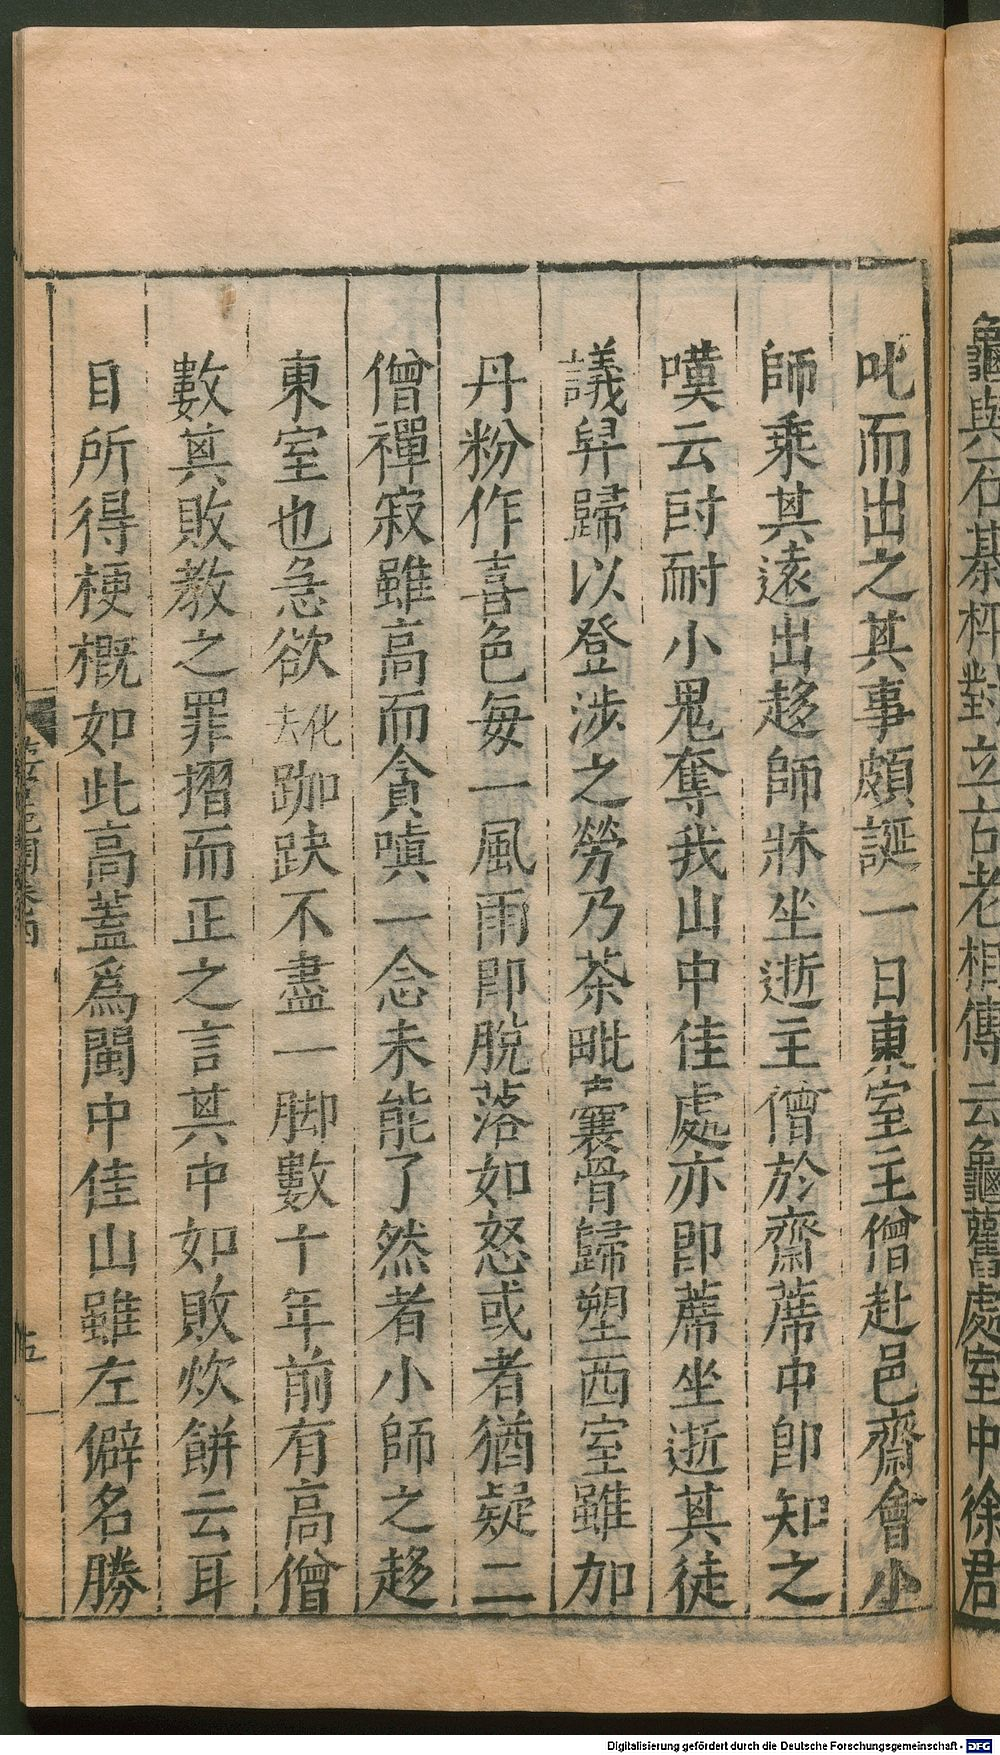 龜與石棊枰對立古老相傳云龜舊處室中徐君
叱而出之其事頗誕一日東室主僧赴邑齋會小
師乘其遠出趍師牀坐逝主僧於齋蓆中卽知之
嘆云尀耐小鬼奪我山中佳處亦卽蓆坐逝其徒
議舁歸以登涉之勞乃茶毗囊骨歸塑西室雖加
丹粉作喜色每一風雨卽脫落如怒或者猶疑二
僧禪寂雖高而貪嗔一念未能了然者小師之趍
東室也急欲化去跏趺不盡一脚數十年前有高僧
數其敗教之罪摺而正之言其中如敗炊餅云耳
目所得梗槪如此高蓋爲閩中佳山雖左僻名勝
卷四
五
Digitalisierung gefördert durch die Deutsche Forschungsgemeinschaft - DFG